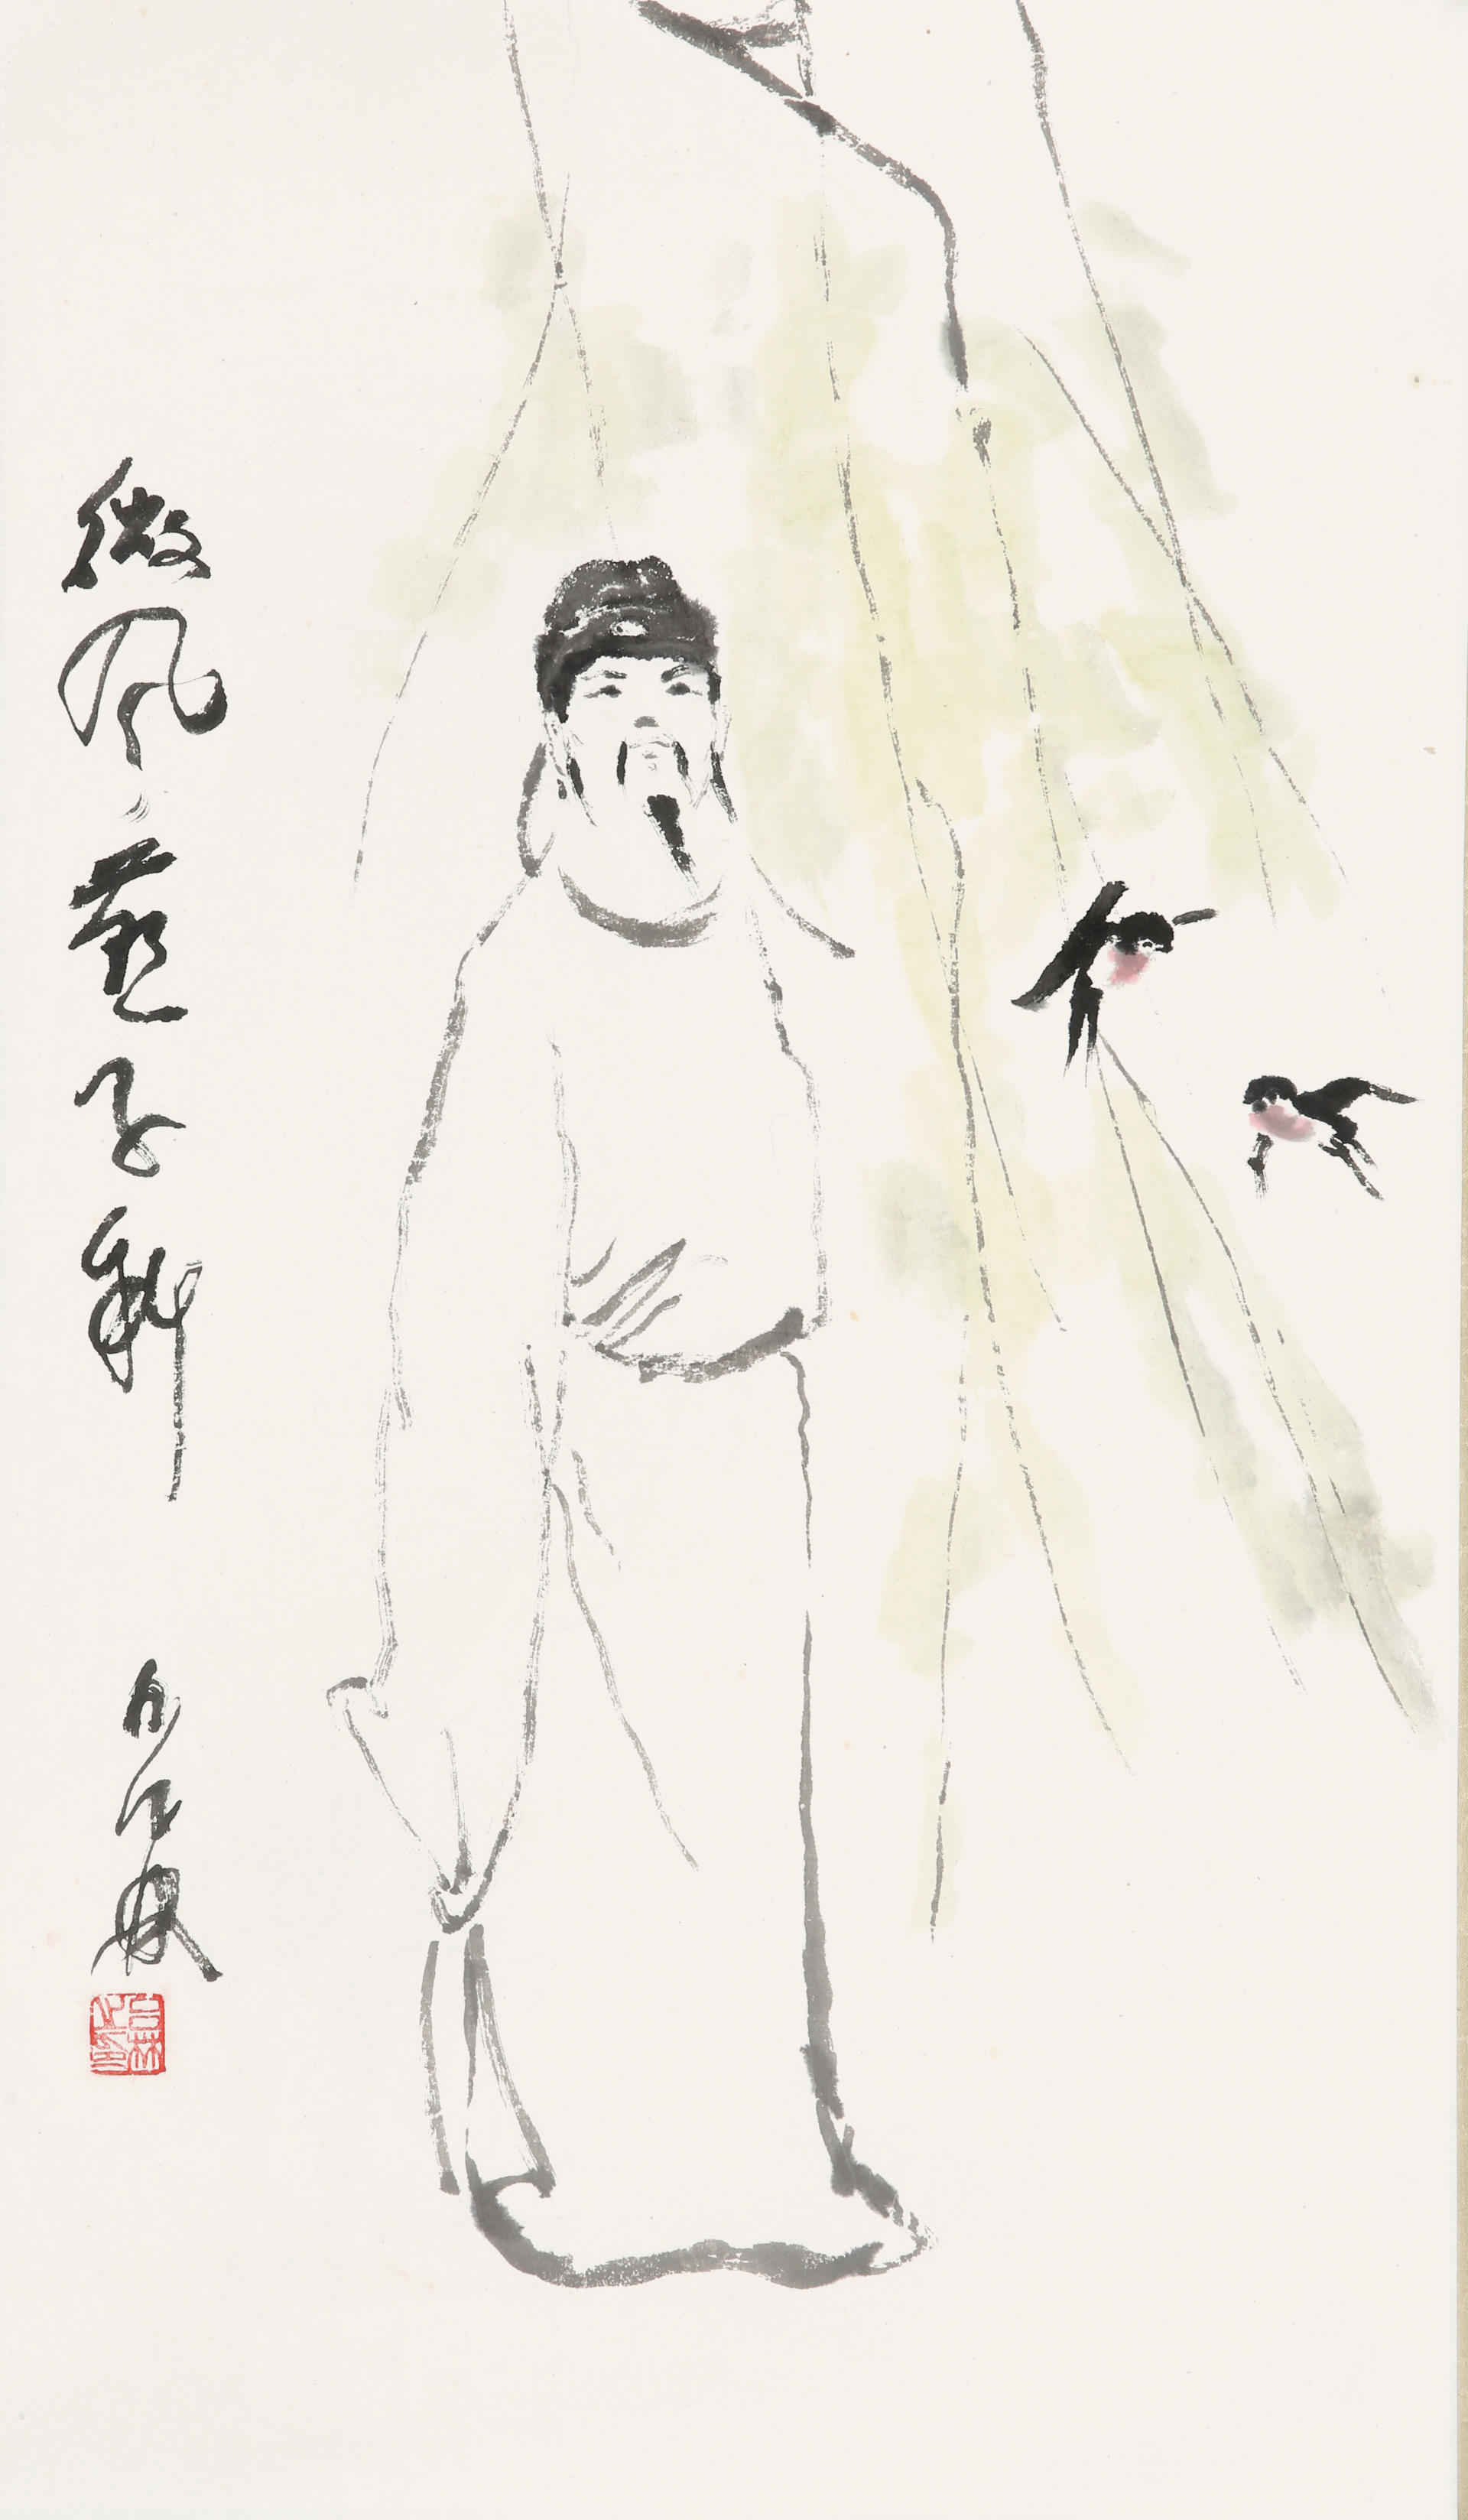 微风燕子斜